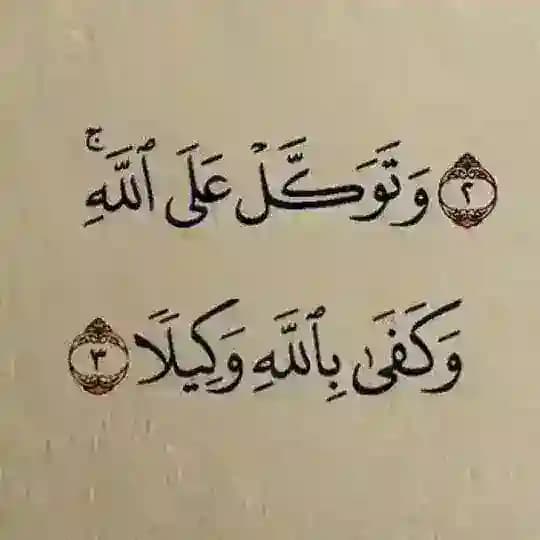 ٢ وَتَوَكَّلْ عَلَى ٱللَّهِۚ
وَكَفَىٰ بِٱللَّهِ وَكِيلًا ٣